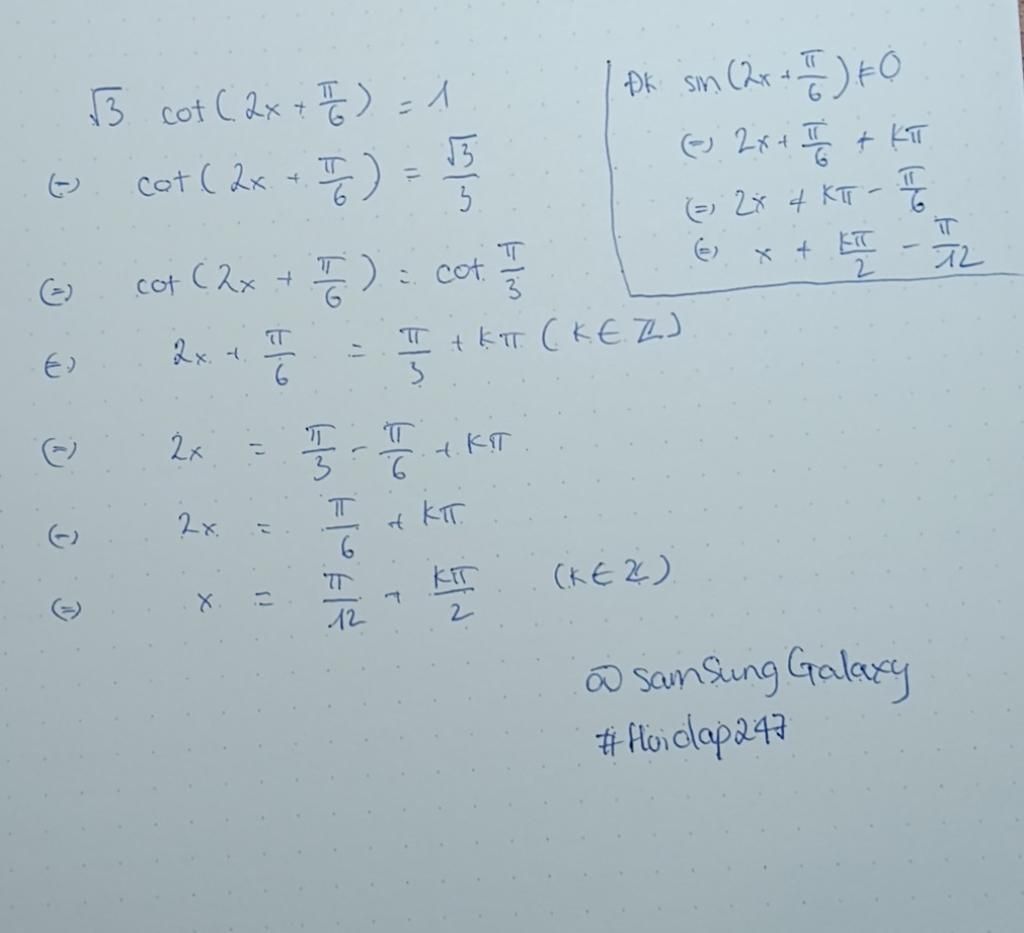 √3 cot(2x + π/6) = 1
(=) cot(2x + π/6) = √3/3
(=) cot(2x + π/6) = cot π/3
(=) 2x + π/6 = π/3 + kπ (k ∈ Z)
(=) 2x = π/3 - π/6 + kπ
(=) 2x = π/6 + kπ
(=) x = π/12 + kπ/2 (k ∈ Z)
ĐK sin(2x + π/6) ≠ 0
(=) 2x + π/6 ≠ kπ
(=) 2x ≠ kπ - π/6
(=) x ≠ kπ/2 - π/12
@samSungGalaxy
#Hoidap247